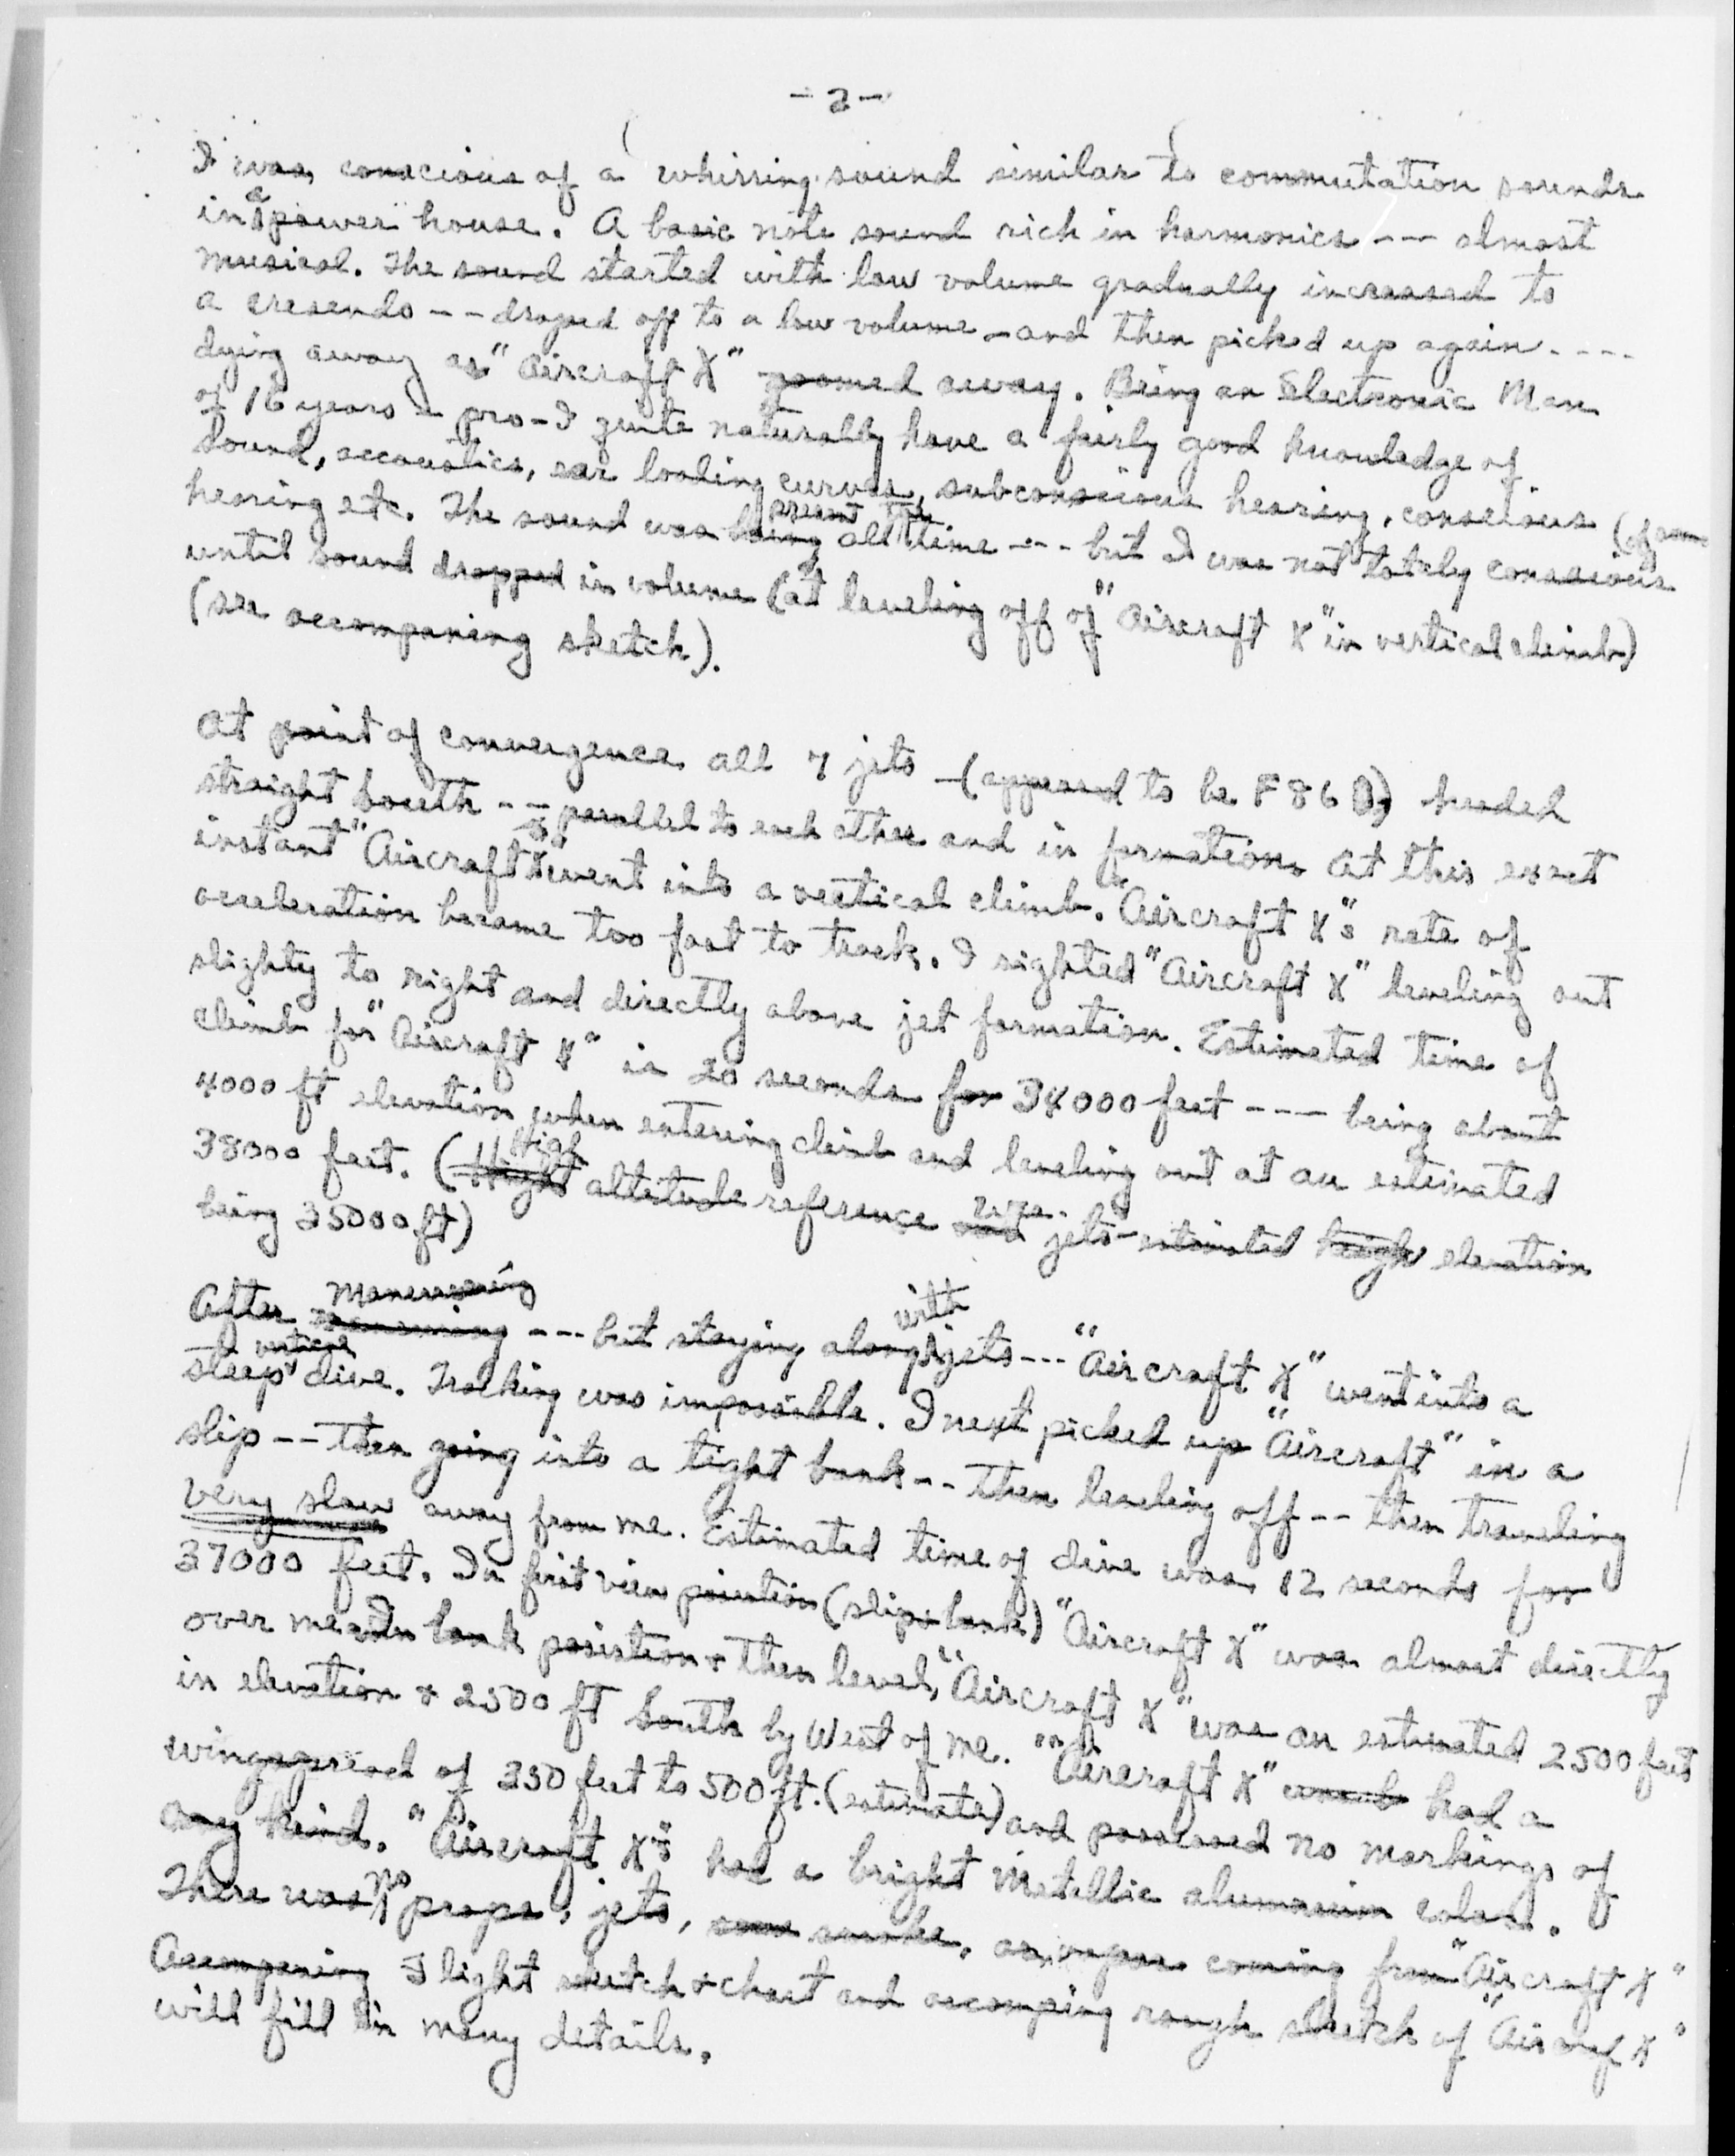 -2-
I was conscious of a whirring sound similar to commutation sounds
in a power house. A basic note sound rich in harmonics --- almost
musical. The sound started with low volume gradually increased to
a cresendo -- droped off to a low volume - and then picked up again ----
dying away as "Aircraft X" zoomed away. Being an Electronic Man
of 16 years pro - I quite naturally have a fairly good knowledge of
sound, accoustics, ear loading curves, subconscious hearing, conscious
hearing etc. The sound was present all the time --- but I was not totely conscious (of same
until sound dropped in volume (at leveling off of "Aircraft X" in vertical climb)
(see accompaning sketch).
At point of convergence all 7 jets - (appeared to be F86 D) headed
straight South -- parallel to each other and in formation. At this exact
instant "Aircraft X" went into a vertical climb. "Aircraft X"s rate of
acceleration became too fast to track. I sighted "Aircraft X" leveling out
slighty to right and directly above jet formation. Estimated time of
climb for "Aircraft X" is 20 seconds for 34000 feet --- being about
4000 ft elevation when entering climb and leveling out at an estimated
38000 feet. (High altitude reference was jets - estimated elevation
being 35000 ft)
After Manuvering --- but staying along with jets --- "Aircraft X" went into a
steep vertical dive. Tracking was impossible. I next picked up "Aircraft" in a
slip -- then going into a tight bank -- then leveling off -- then traveling
very slow away from me. Estimated time of dive was 12 seconds for
37000 feet. In first view position (slip & bank) "Aircraft X" was almost directly
over me. In bank position & then level, "Aircraft X" was an estimated 2500 feet
in elevation & 2500 ft South by West of me. "Aircraft X" had a
wingspread of 350 feet to 500 ft. (estimate) and possessed no markings of
any kind. "Aircraft X" had a bright metallic aluminum color.
There was no props, jets, smoke, or vapor coming from "Aircraft X"
Accompaning Flight sketch & chart and accomping rough sketch of "Aircraf X"
will fill in many details.